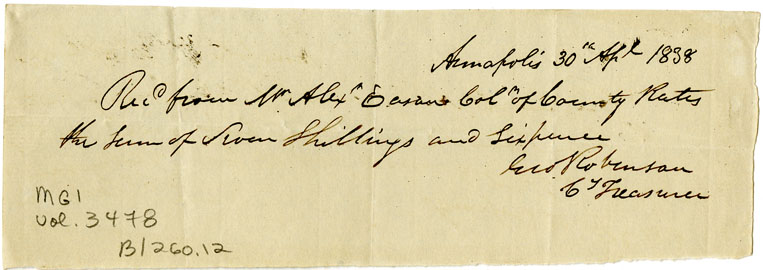 Annapolis 30th Apl 1838
Recd from Mr Alexr Easan Colr of County Rates
the sum of Seven Shillings and Sixpence
Geo Robinson
Cy Treasurer
MG1
vol. 3478
B/260.12